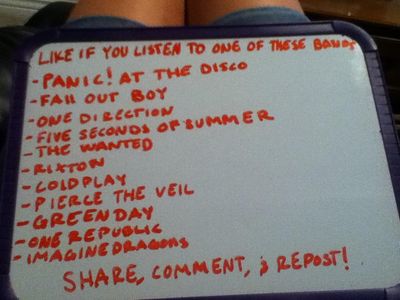 LIKE IF YOU LISTEN TO ONE OF THESE BANDS
- PANIC! AT THE DISCO
- FALL OUT BOY
- ONE DIRECTION
- FIVE SECONDS OF SUMMER
- THE WANTED
- RIXTON
- COLDPLAY
- PIERCE THE VEIL
- GREEN DAY
- ONE REPUBLIC
- IMAGINE DRAGONS
SHARE, COMMENT, & REPOST!